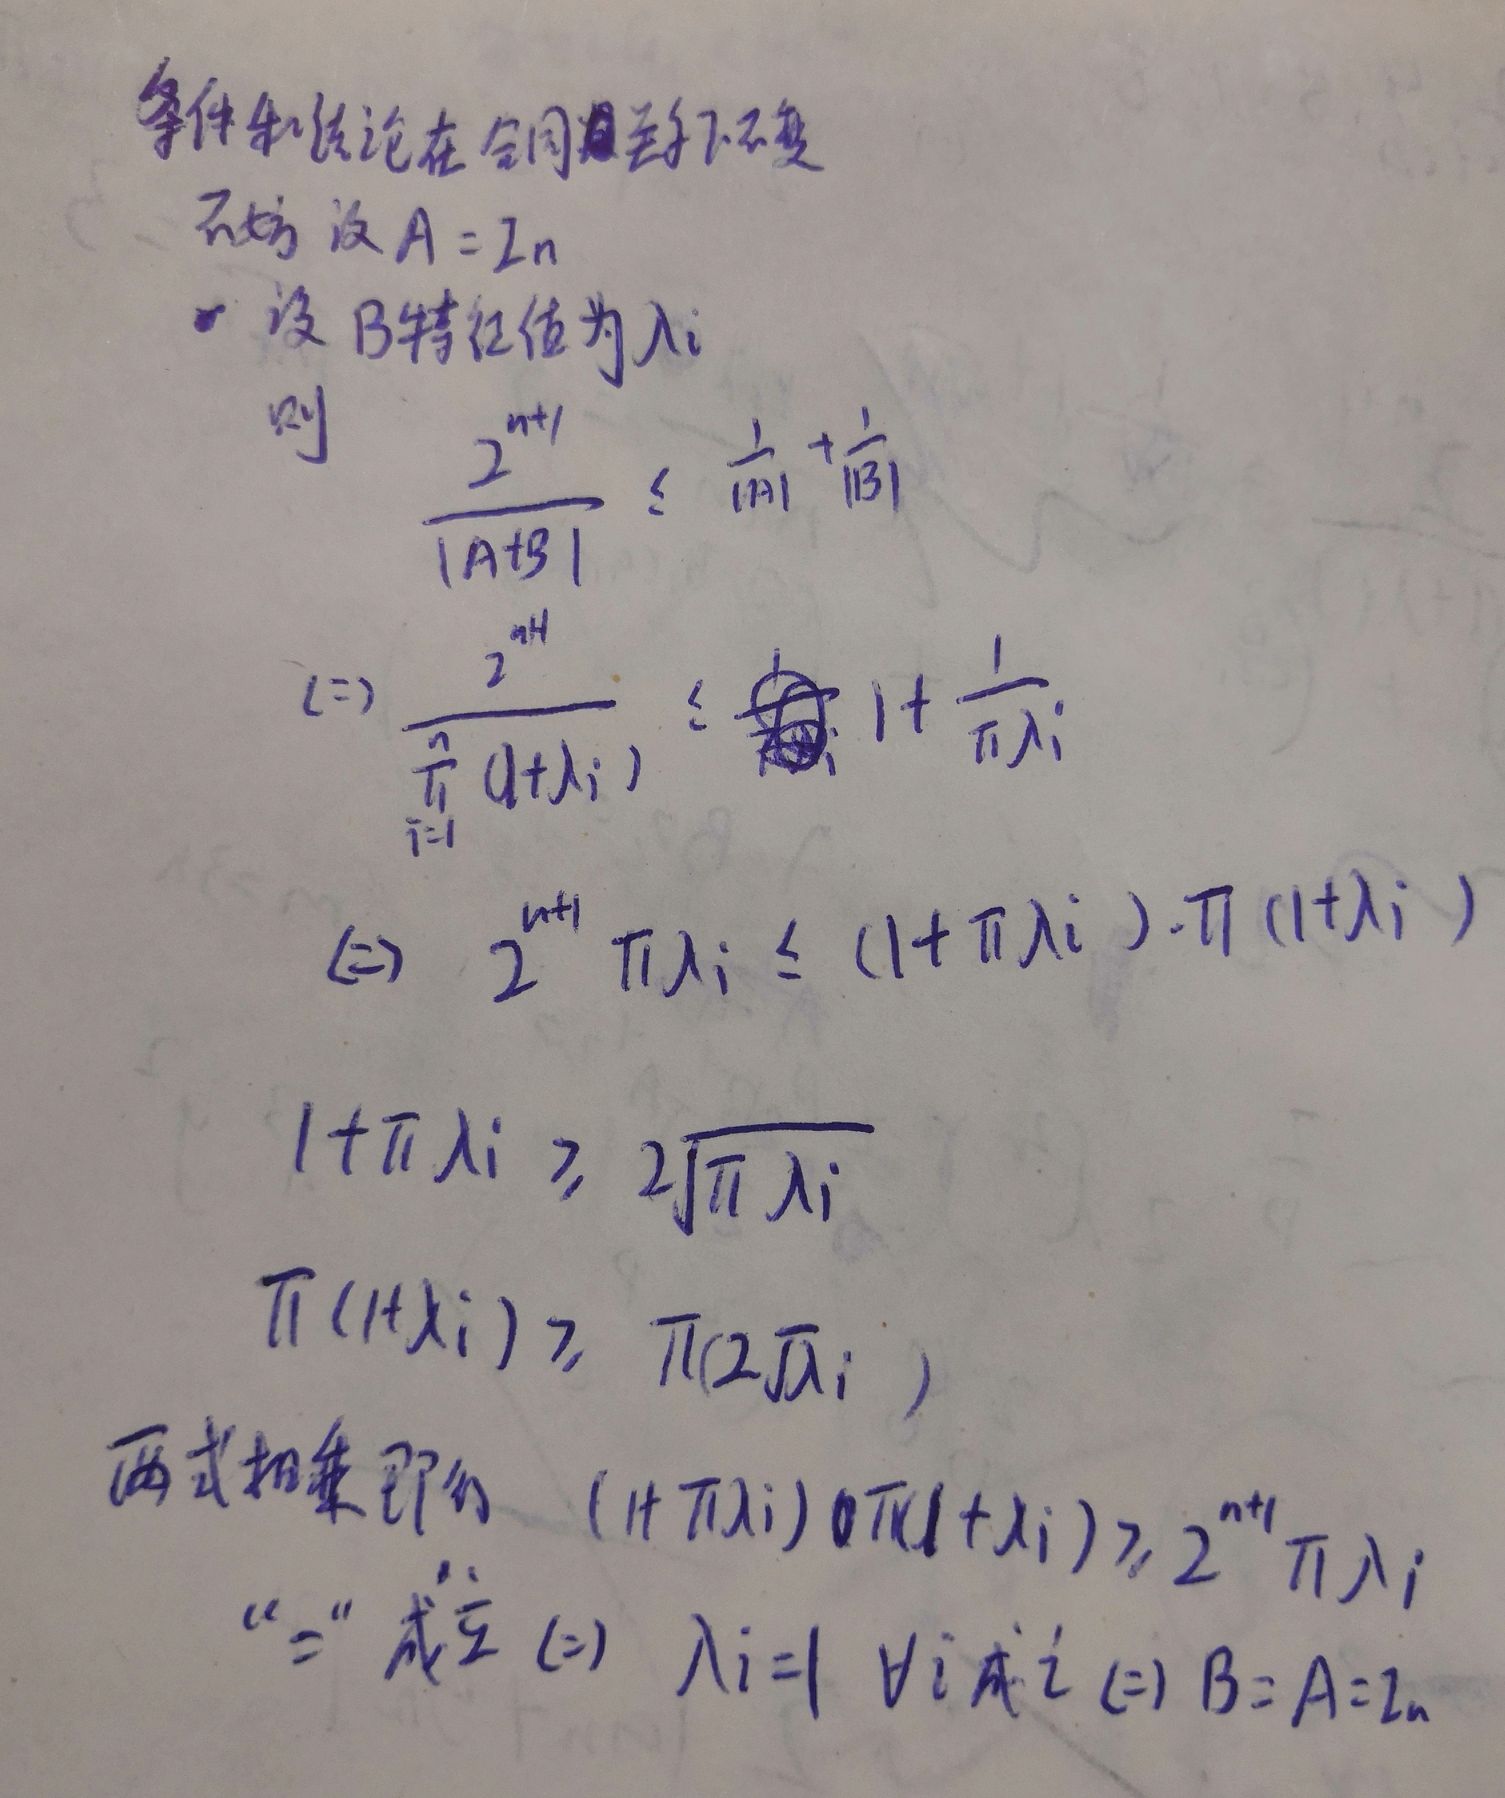 条件和结论在合同关系下不变
不妨设 A = In
设 B特征值为 λi
则 2^{n+1} / |A+B| ≤ 1/|A| + 1/|B|
(=) 2^{n+1} / ∏_{i=1}^{n} (1+λi) ≤ 1 + 1/∏λi
(=) 2^{n+1} ∏λi ≤ (1+∏λi)·∏(1+λi)
1+∏λi ≥ 2√∏λi
∏(1+λi) ≥ ∏(2√λi)
两式相乘即得 (1+∏λi)∏(1+λi) ≥ 2^{n+1} ∏λi
“=” 成立 (=) λi=1 ∀i成立 (=) B=A=In